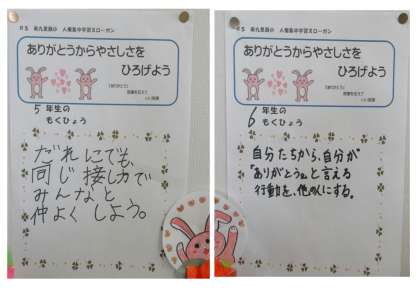 R5 南九笑顔の 人権集中学習スローガン
ありがとうからやさしさを
ひろげよう
5年生の
もくひょう
だれにでも、
同じ接し方で
みんなと
仲よくしよう。
ありがとうからやさしさを
ひろげよう
6年生の
もくひょう
自分たちから、自分が
"ありがとう"と言える
行動を、他の人にする。